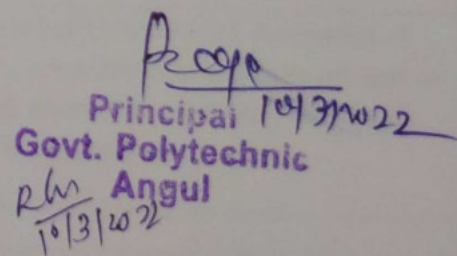 Principal 10/3/2022
Govt. Polytechnic
Angul
10/3/2022